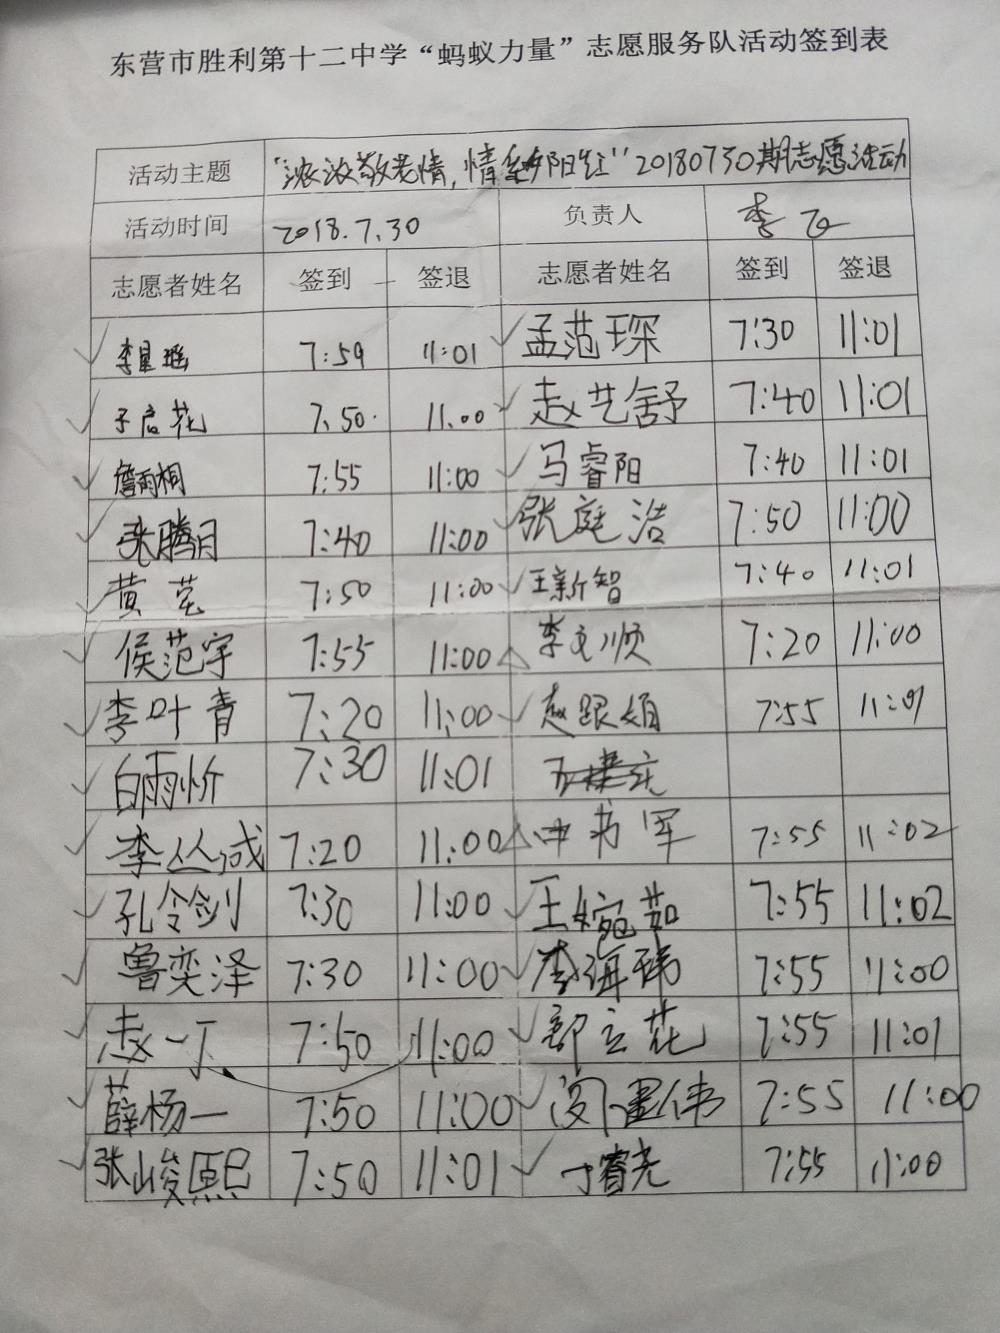 东营市胜利第十二中学“蚂蚁力量”志愿服务队活动签到表
活动主题 “浓浓敬老情，情系夕阳红”20180730期志愿活动
活动时间 2018.7.30 负责人 李
志愿者姓名 签到 签退 志愿者姓名 签到 签退
李星瑶 7:59 11:01 孟范琛 7:30 11:01
7:50 11:00 赵艺舒 7:40 11:01
詹雨桐 7:55 11:00 马睿阳 7:40 11:01
张腾月 7:40 11:00 张庭浩 7:50 11:00
黄莹 7:50 11:00 王新智 7:40 11:01
侯范宇 7:55 11:00 李 顺 7:20 11:00
李叶青 7:20 11:00 赵跟娟 7:55 11:01
白雨忻 7:30 11:01
李丛诚 7:20 11:00 7:55 11:02
孔令剑 7:30 11:00 王婉茹 7:55 11:02
鲁奕泽 7:30 11:00 李海 7:55 11:00
赵一丁 7:50 11:00 立花 7:55 11:01
薛杨一 7:50 11:00 伟 7:55 11:00
张峻熙 7:50 11:01 于睿尧 7:55 11:00